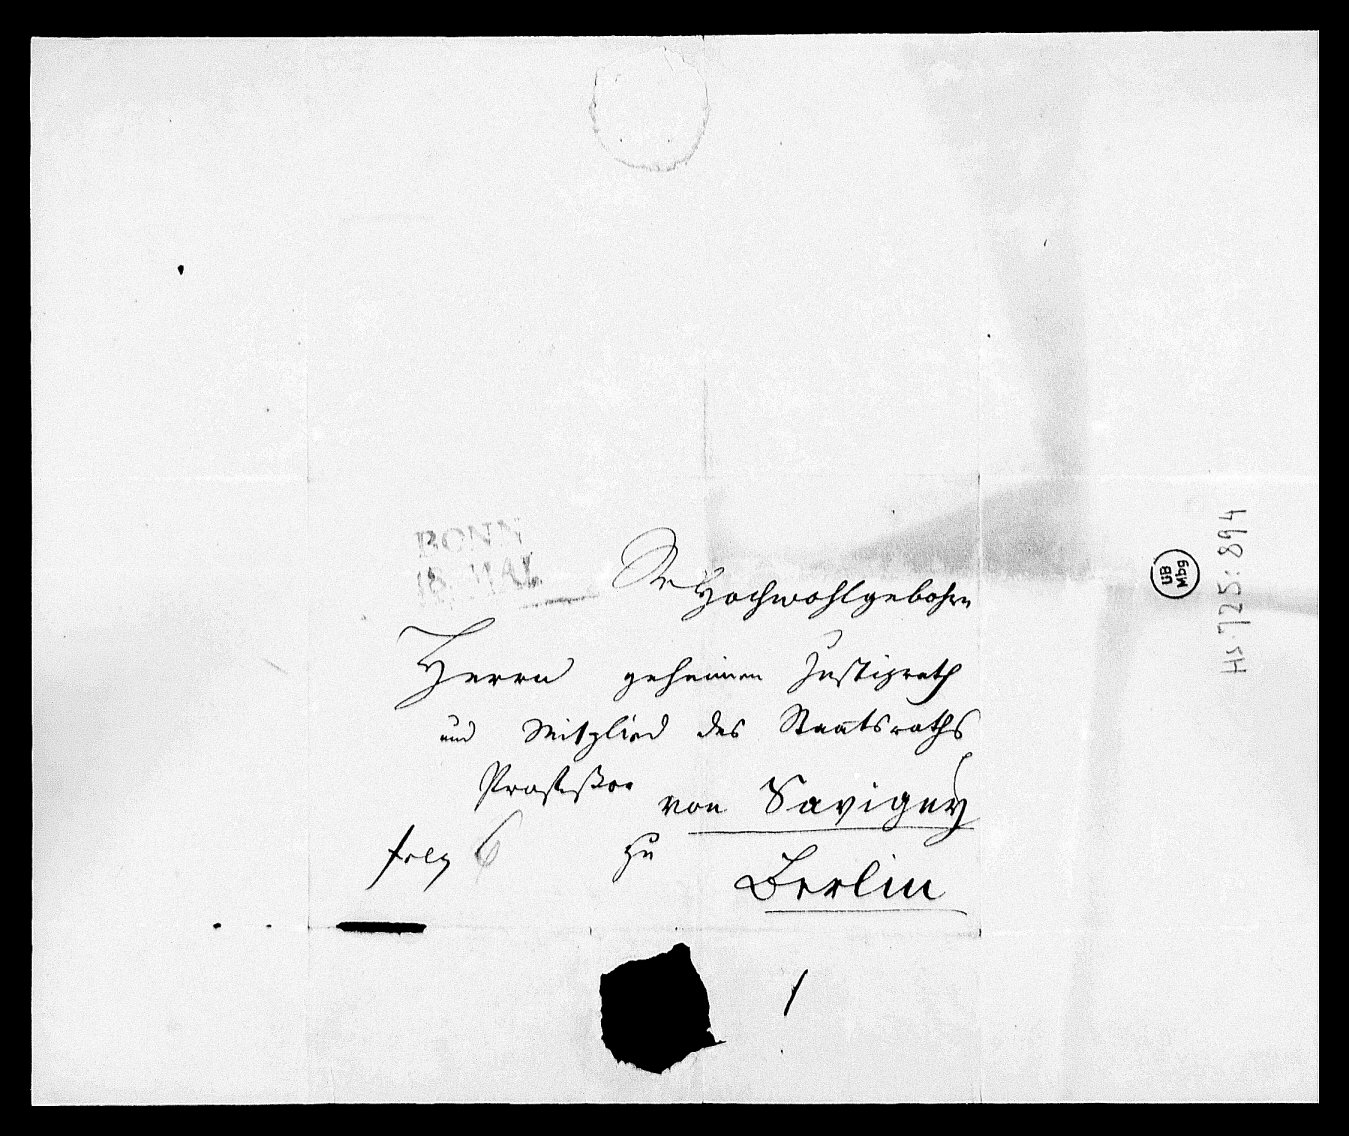 BONN
18 MAI
Sr Hochwohlgebohrn
Herrn geheimen Justizrath
und Mitglied des Staatsraths
Professor von Savigny
frey 6 zu
Berlin
UB
Mbg
Hs 725:894